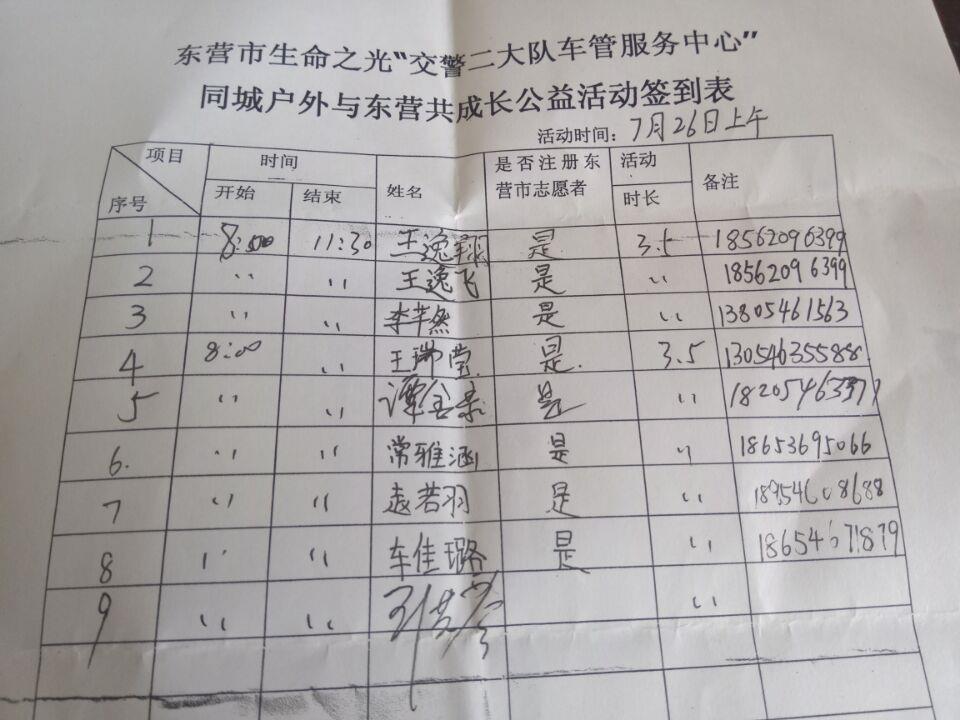 东营市生命之光“交警二大队车管服务中心”
同城户外与东营共成长公益活动签到表
活动时间：7月26日上午
项目 时间 姓名 是否注册东营市志愿者 活动时长 备注
序号 开始 结束
1 8:00 11:30 王逸翔 是 3.5 18562096399
2 〃 〃 王逸飞 是 〃 18562096399
3 〃 〃 李芊然 是 〃 13805461563
4 8:00 〃 王瑞莹 是 3.5 13054635588
5 〃 〃 谭 是 〃
6. 〃 〃 常雅涵 是 〃 18653695066
7 〃 〃 袁若羽 是 〃 18954608688
8 〃 〃 车佳璐 是 〃 18654671879
9 〃 〃 〃